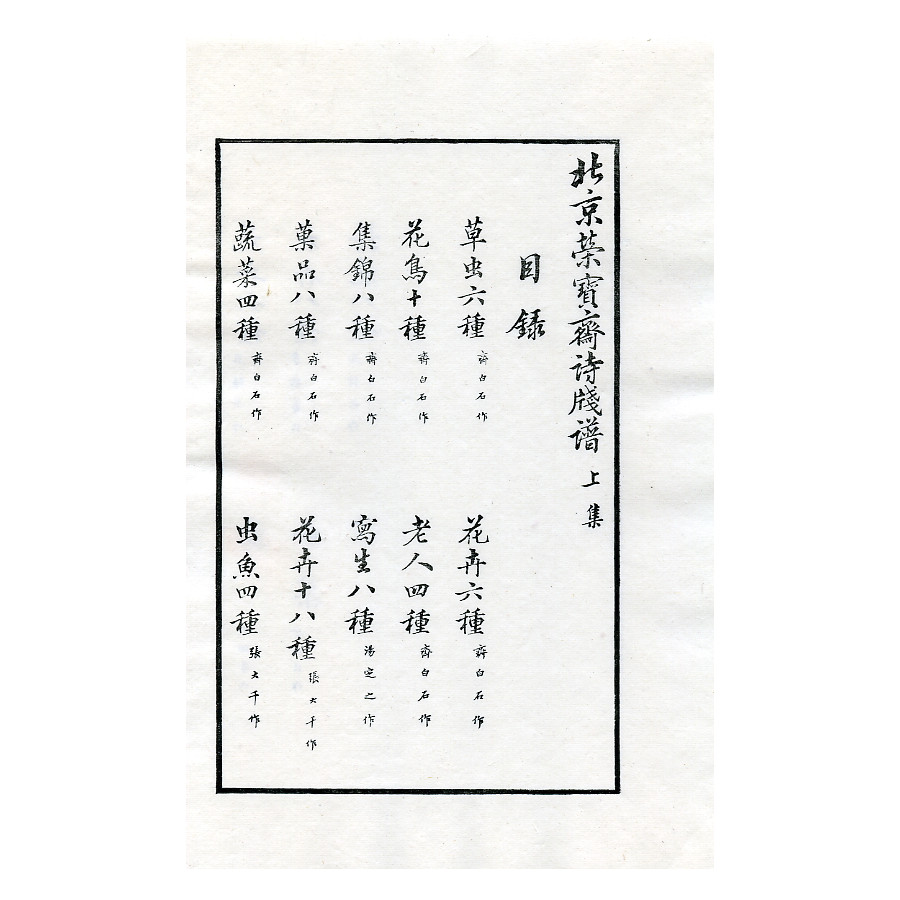 北京榮寶齋詩牋譜 上集
目錄
草虫六種 齊白石作
花卉六種 齊白石作
花鳥十種 齊白石作
老人四種 齊白石作
集錦八種 齊白石作
寫生八種 湯定之作
菓品八種 齊白石作
花卉十八種 張大千作
蔬菜四種 齊白石作
虫魚四種 張大千作